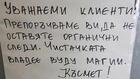 УВАЖАЕМИ КЛИЕНТИ!
ПРЕПОРЪЧВАМЕ ВИ, ДА НЕ
ОСТАВЯТЕ ОРГАНИЧНИ
СЛЕДИ. ЧИСТАЧКАТА
ВЛАДЕЕ ВУДУ МАГИИ.
КЪСМЕТ!